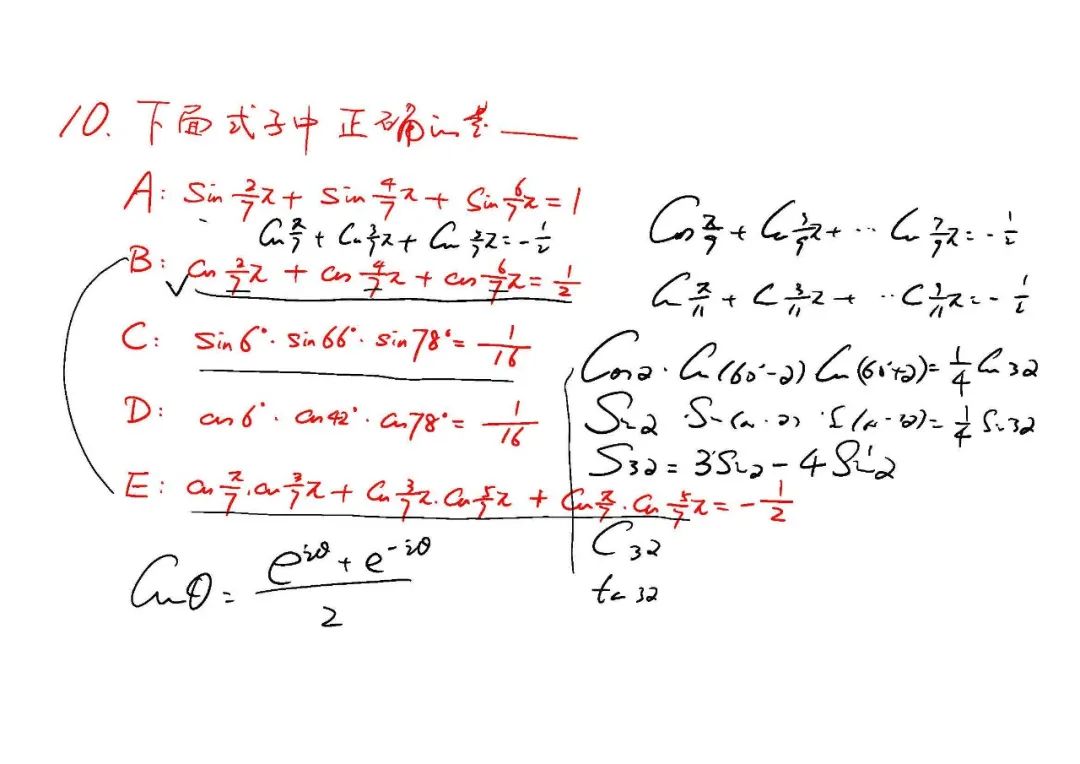 10. 下面式子中正确的是 ____
A: sin 2/7 π + sin 4/7 π + sin 6/7 π = 1
cos π/7 + cos 3/7 π + cos 5/7 π = -1/2
B: cos 2/7 π + cos 4/7 π + cos 6/7 π = 1/2
C: sin 6° · sin 66° · sin 78° = 1/16
D: cos 6° · cos 42° · cos 78° = 1/16
E: cos π/7 · cos 3/7 π + cos 3/7 π · cos 5/7 π + cos π/7 · cos 5/7 π = -1/2
cos θ = (e^{iθ} + e^{-iθ}) / 2
cos π/9 + cos 3/9 π + ·· cos 7/9 π = -1/2
C π/11 + C 3/11 π + ·· C
Cos α · cos (60° - α) cos (60° + α) = 1/4 cos 3α
= 1/4 S 3α
S 3α = 3 Sin α - 4 Sin α
C 3α
ta 3α